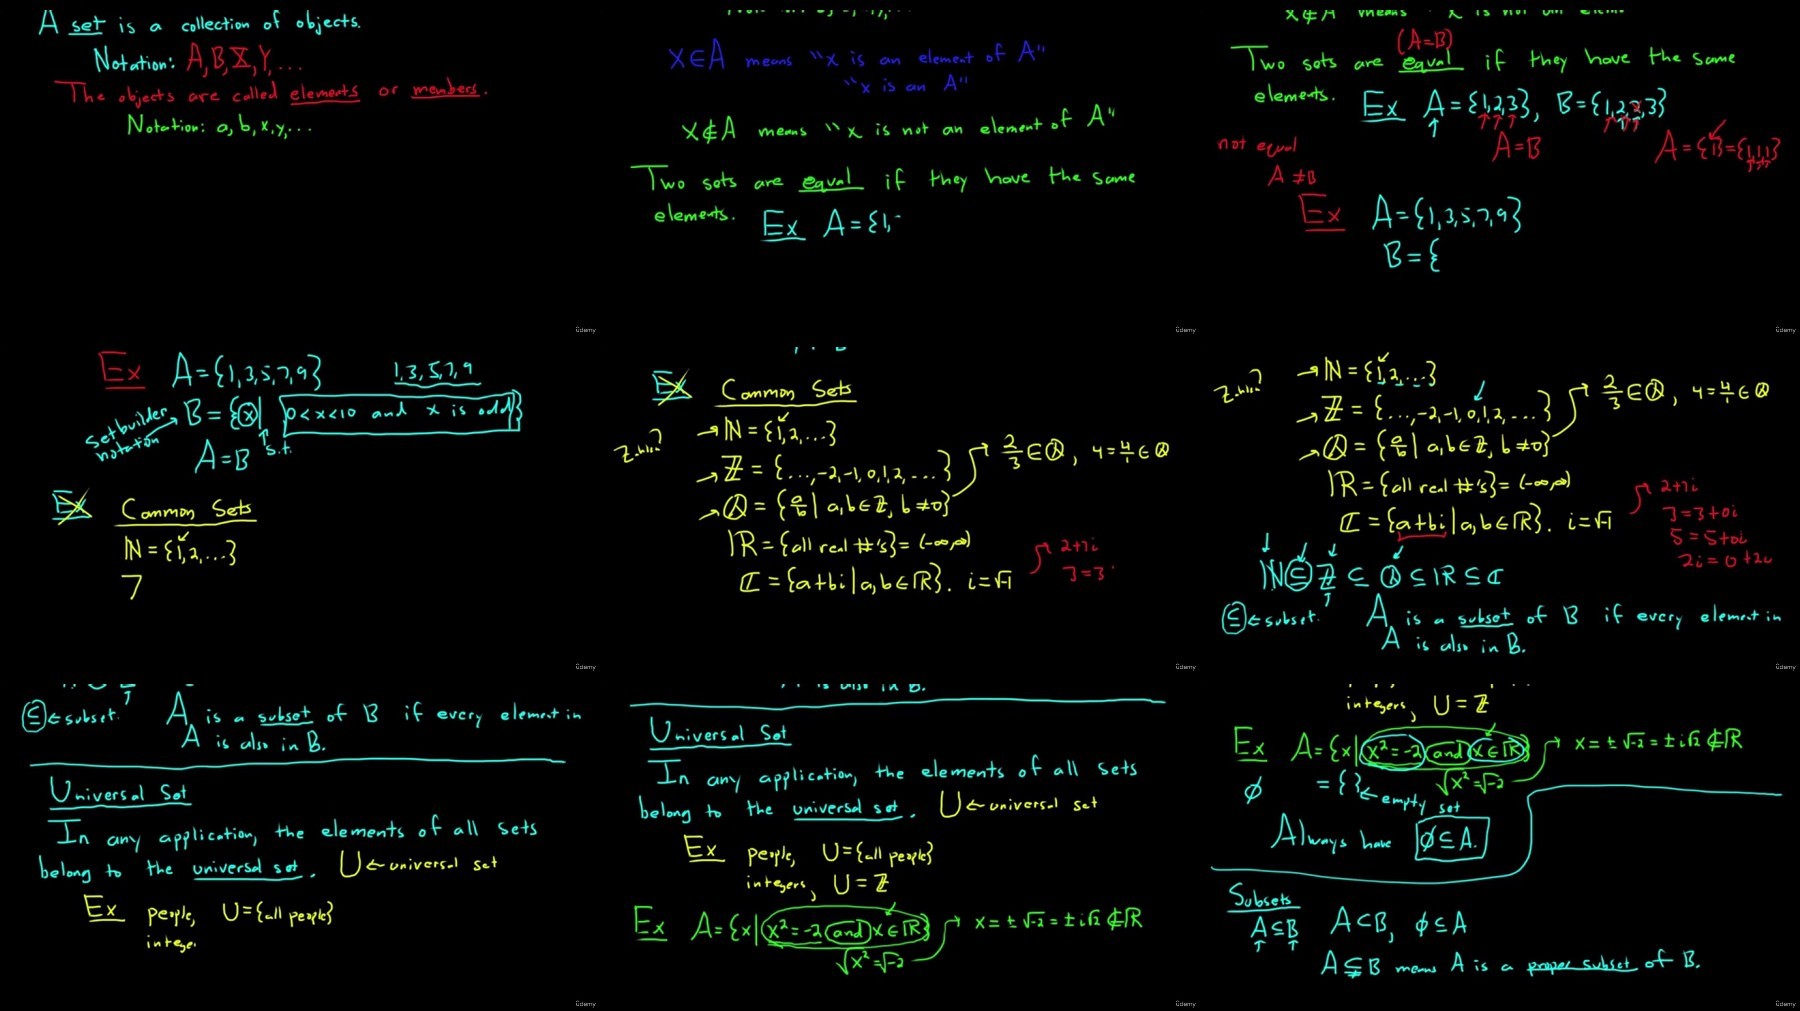 A set is a collection of objects.
Notation: A, B, X, Y, ...
The objects are called elements or members.
Notation: a, b, x, y, ...
x∈A means "x is an element of A"
"x is an A"
x∉A means "x is not an element of A"
Two sets are equal if they have the same
elements. Ex A={1,
ûdemy
ûdemy
(A=B)
Two sets are equal if they have the same
elements. Ex A={1,2,3}, B={1,2,2,3}
not equal A=B A={1}={1,1,1}
A≠B
Ex A={1,3,5,7,9}
B={
ûdemy
Ex A={1,3,5,7,9} 1,3,5,7,9
set builder notation B={x| 0<x<10 and x is odd}
A=B s.t.
Ex Common Sets
ℕ={1,2,...}
7
ûdemy
Ex Common Sets
ℕ={1,2,...}
ℤ={...,-2,-1,0,1,2,...} 2/3∈ℚ, 4=4/1∈ℚ
ℚ={a/b | a,b∈ℤ, b≠0}
ℝ={all real #'s}=(-∞,∞) 2+7i
ℂ={a+bi | a,b∈ℝ}. i=√-1 3=3
ûdemy
ℕ={1,2,...}
ℤ={...,-2,-1,0,1,2,...} 2/3∈ℚ, 4=4/1∈ℚ
ℚ={a/b | a,b∈ℤ, b≠0}
ℝ={all real #'s}=(-∞,∞) 2+7i
3=3+0i
ℂ={a+bi | a,b∈ℝ}. i=√-1 5=5+0i
2i=0+2i
ℕ⊆ℤ⊆ℚ⊆ℝ⊆ℂ
⊆←subset. A is a subset of B if every element in
A is also in B.
ûdemy
⊆←subset. A is a subset of B if every element in
A is also in B.
Universal Set
In any application, the elements of all sets
belong to the universal set. U←universal set
Ex people, U={all people}
intege
ûdemy
A is also in B.
Universal Set
In any application, the elements of all sets
belong to the universal set. U←universal set
Ex people, U={all people}
integers, U=ℤ
Ex A={x| x²=-2 and x∈ℝ} → x=±√-2=±i√2∉ℝ
√x²=√-2
ûdemy
integers, U=ℤ
Ex A={x| x²=-2 and x∈ℝ} → x=±√-2=±i√2∉ℝ
√x²=√-2
∅ ={ }←empty set
Always have ∅⊆A.
Subsets
A⊆B A⊂B, ∅⊆A
A⊊B means A is a proper subset of B.
ûdemy